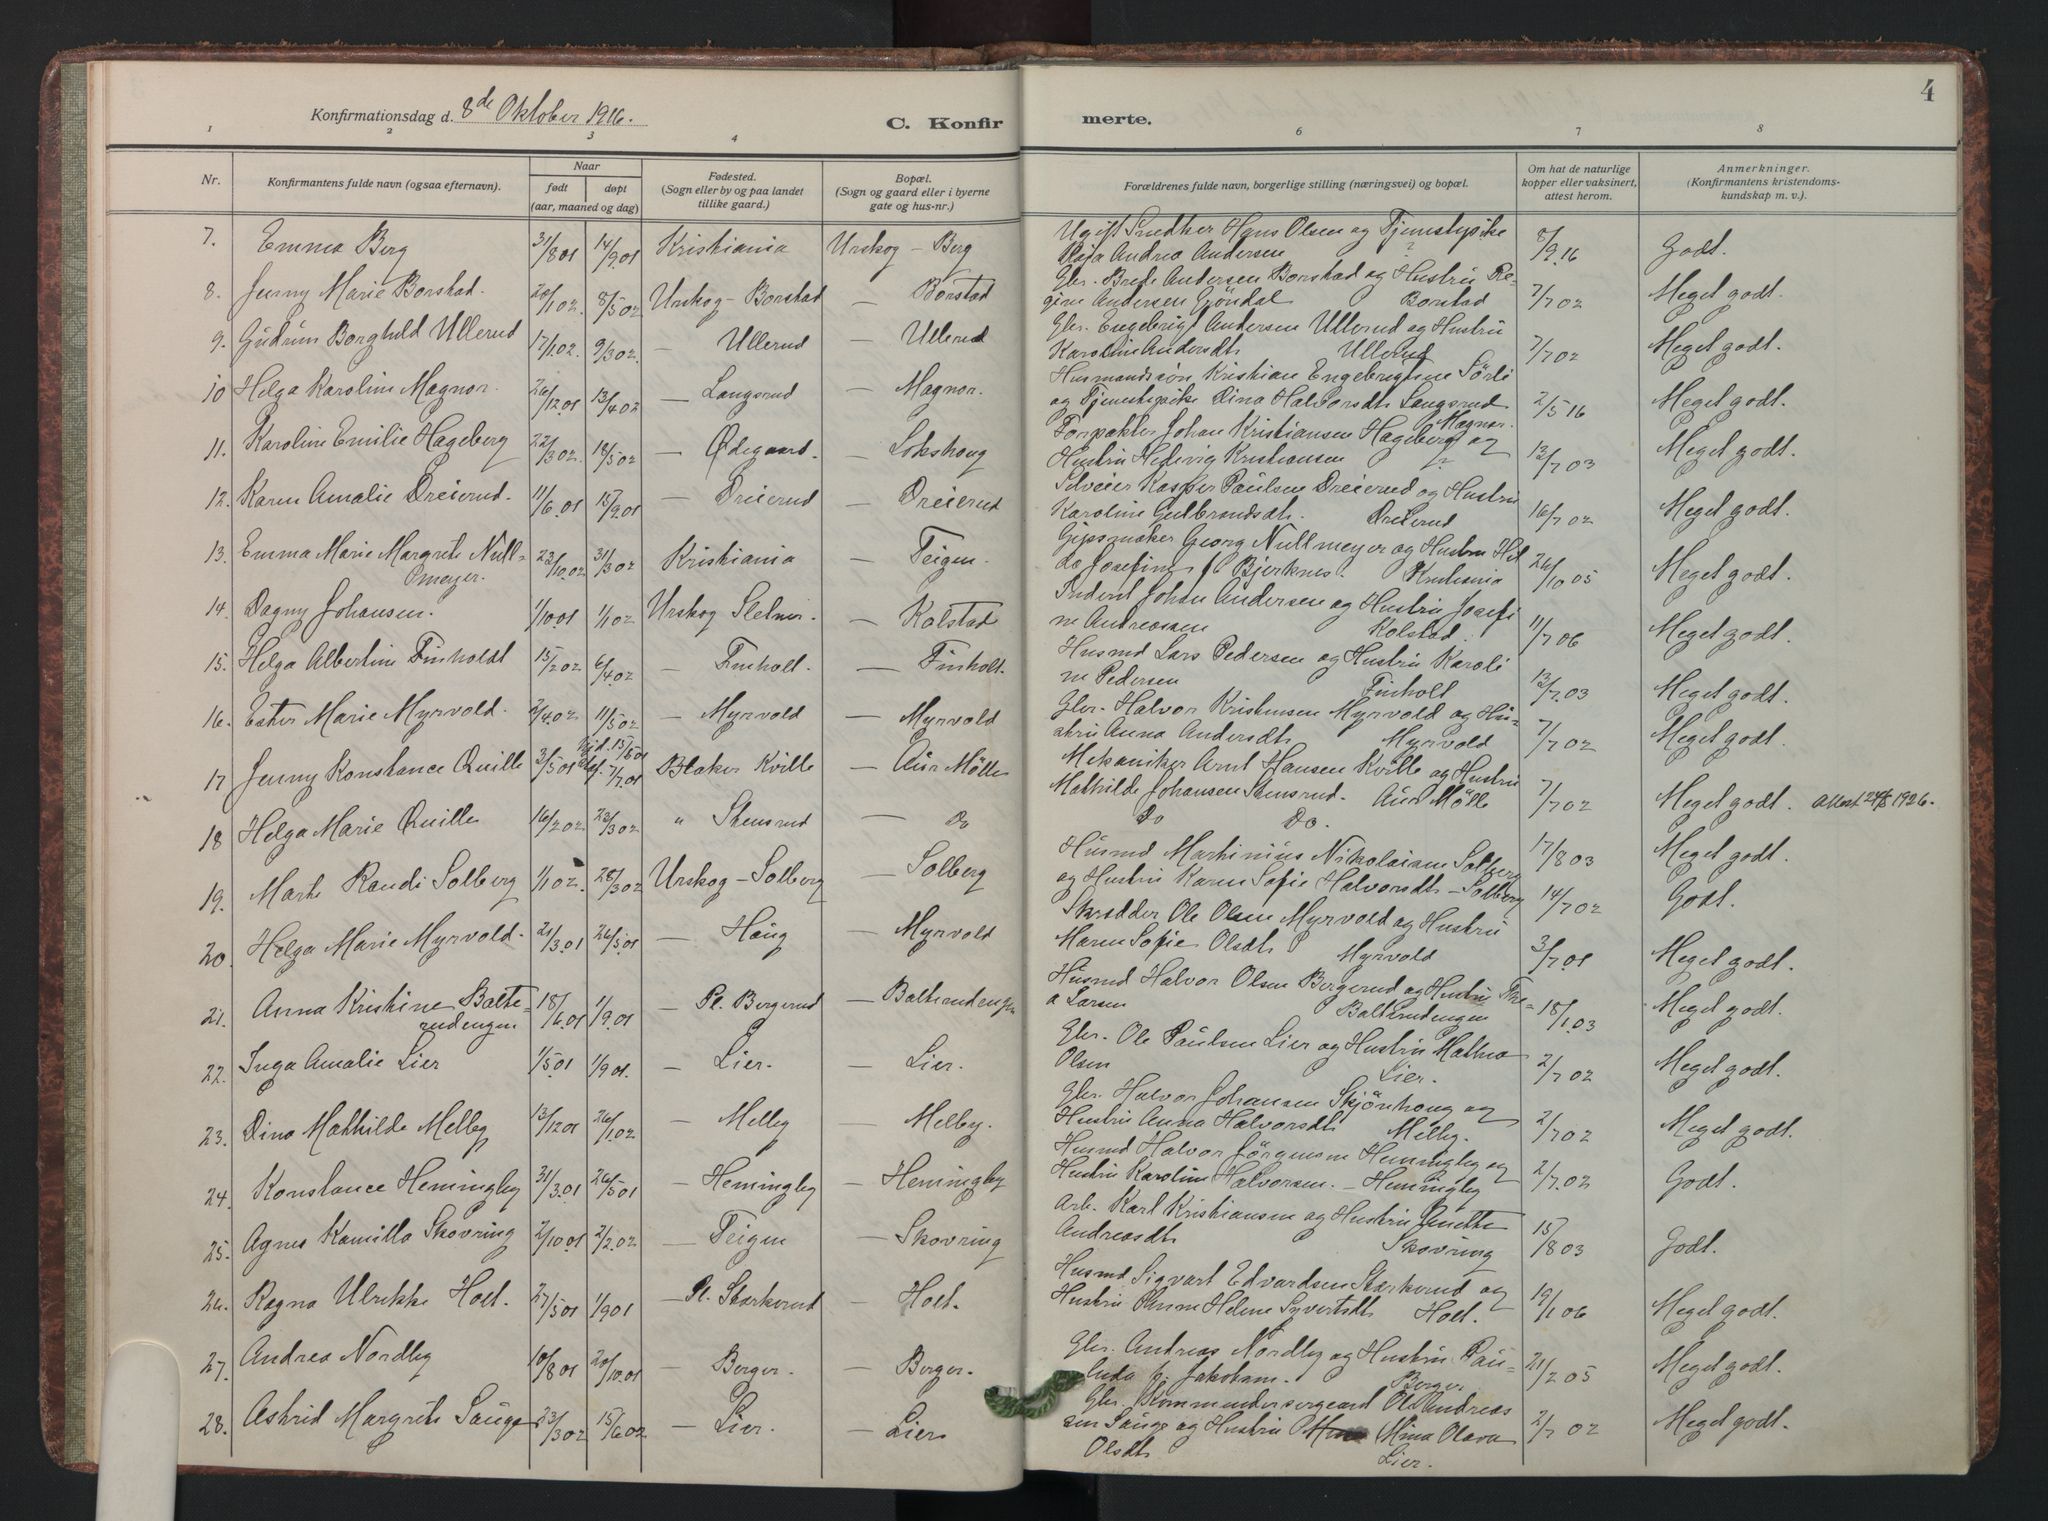 4
Konfirmationsdag d. 8de Oktober 1916.
C. Konfirmerte.
1 2 3 4 6 7 8
Nr.
Konfirmantens fulde navn (ogsaa efternavn).
Naar
født
døpt
(aar, maaned og dag)
Fødested.
(Sogn eller by og paa landet
tillike gaard.)
Bopæl.
(Sogn og gaard eller i byerne
gate og hus-nr.)
Forældrenes fulde navn, borgerlige stilling (næringsvei) og bopæl.
Om hat de naturlige
kopper eller vaksinert,
attest herom.
Anmerkninger.
(Konfirmantens kristendoms-
kundskap m. v.).
7. Emma Berg 31/8 01 14/9 01 Kristiania Urskog — Berg Ugift Snedker Hans Olsen og Tjenestepike
Andrea Andersen ? 8/9 16 Godt.
8. Jenny Marie Borstad. 20/1 02. 8/5 02 Urskog - Borstad — Borstad Gbr. Brede Andersen Borstad og Hustru Re-
gine Andersen Borstad 7/7 02 Meget godt.
9. Gudrun Borghild Ullerud 17/1 02. 9/3 02. — Ullerud — Ullerud Gbr. Engebrigt Andersen Ullerud og Hustru
Karoline Andersdt. Ullerud 7/7 02 Meget godt.
10 Helga Karoline Magnor. 26/12 01 13/4 02 — Langsrud — Magnor. Husmandssøn Kristian Engebrigtsen Sörli
og Tjenestepike Dina Halvorsdt. Langsrud Magnor. 2/5 16 Meget godt.
11. Karoline Emilie Hageberg 22/3 02. 18/5 02 — Ødegaard. — Lokshoug Forpakter Johan Kristiansen Hageberg og
Hustru Hedevig Kristiansen 13/7 03 Meget godt.
12. Karen Amalie Dreierud. 11/6 01 15/9 01 — Dreierud — Dreierud Selveier Kasper Paulsen Dreierud og Hustru
Karoline Gulbrandsdt. Dreierud 16/7 02 Meget godt.
13. Emma Marie Margrete Null-
meyer. 23/10 02 31/3 02 Kristiania — Teigen. Gipsmaker Georg Nullmeyer og Hustru Hil
da Josefine Bjerknes. Kristiania 26/10 05 Meget godt.
14. Dagny Johansen. 1/10 01 1/1 02 Urskog — Kolstad Inderst Johan Andersen og Hustru Josefi
ne Andreassen Kolstad. 11/7 06 Meget godt.
15. Helga Albertine Finholdt 15/2 02 6/4 02 — Finholt — Finholt. Husmd Lars Pedersen og Hustru Karoli
ne Pedersen Finholt 13/7 03 Meget godt.
16. Ester Marie Myrvold. 2/4 02 11/5 02 — Myrvold — Myrvold Gbr. Halvor Kristensen Myrvold og Hu-
stru Anna Andersdt. Myrvold 7/7 02 Meget godt.
17 Jenny Konstance Quille 3/5 01 Hjd. 15/5 01 7/7 01 Blaker Kville — Aur Mölle Mekaniker Arnt Hansen Kville og Hustru
Mathilde Johansen Stensrud. Aur Mölle 7/7 02 Meget godt. Attest 24/8 1926.
18 Helga Marie Quille 16/2 02 23/3 02 " Stensrud — Do Do Do. 17/8 03 Meget godt.
19. Marte Randi Solberg 1/1 02. 28/3 02 Urskog - Solberg — Solberg Husmd Martinius Nikolaisen Solberg
og Hustru Karen Sofie Halvorsdt. - Solberg 14/7 02 Godt.
20. Helga Marie Myrvold. 21/3 01 26/5 01 — Haug — Myrvold Skrædder Ole Olsen Myrvold og Hustru
Maren Sofie Olsdt. Myrvold 3/7 01 Meget godt.
21. Anna Kristine Balte-
rudengen 18/6 01 1/9 01 — Pl. Bergerud — Balterudengen Husmd Halvor Olsen Bergerud og Hustru The-
a Larsen Balterudengen 18/1 03 Meget godt.
22. Inga Amalie Lier 1/5 01 1/9 01. — Lier. — Lier. Gbr. Ole Paulsen Lier og Hustru Mathea
Olsen Lier. 2/7 02 Meget godt.
23. Dina Mathilde Melby 13/12 01 26/1 02 — Melby — Melby. Gbr. Halvor Johansen Skjönhoug og
Hustru Anna Halvorsdt. Melby. 2/7 02 Meget godt.
24. Konstance Hemingby 31/3 01 26/5 01 — Hemingby — Hemingby Husmd Halvor Jörgensen Hemingby og
Hustru Karoline Halvorsen. - Hemingby 2/7 02 Godt.
25. Agnes Kamilla Skovring 2/10 01 2/2 02 — Teigen — Skovring Arb. Karl Kristiansen og Hustru Anette
Andreasdt. Skovring 15/8 03 Godt.
26. Ragna Ulrikke Holt. 27/5 01 1/9 01 — Pl. Starkerud — Holt. Husmd Sigvart Edvardsen Starkerud og
Hustru Anne Helene Syvertsdt. Holt. 19/1 06 Meget godt.
27. Andrea Nordby 10/8 01 20/10 01 — Berger. — Berger. Gbr. Andreas Nordby og Hustru Pau-
linda f. Jakobsen. Berger 21/2 05 Meget godt.
28. Astrid Margrete Sauge 23/3 02 15/6 02 — Lier. — Lier Gbr. Kommandersergeant Ole Andreas
sen Sauge og Hustru Mina Olava
Olsdt. Lier. 2/7 02 Meget godt.